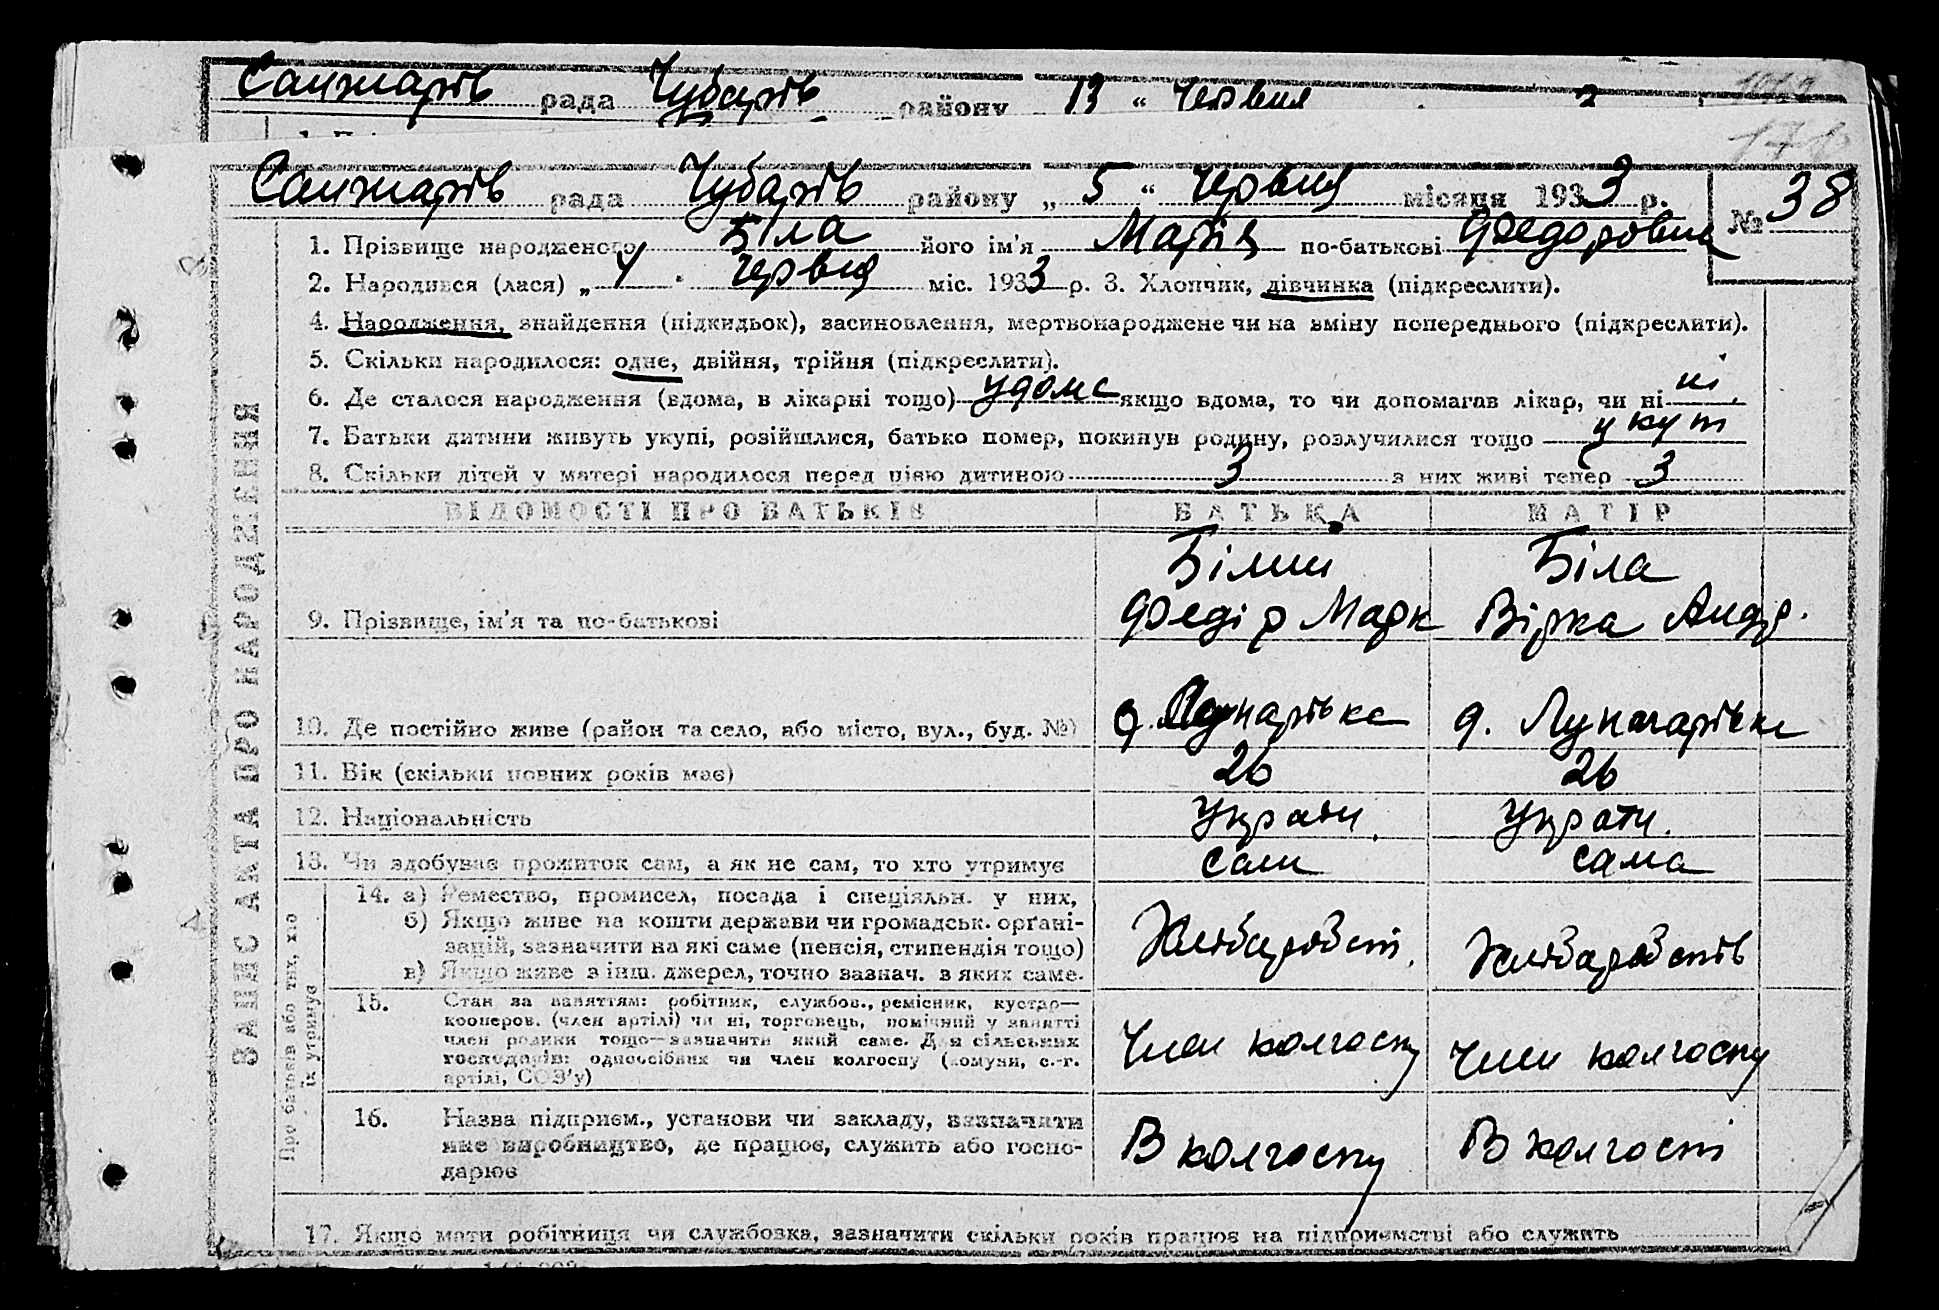 Санжарів рада Чубарів району 13 " Червня
Санжарів рада Чубарів району „ 5 " Червня місяця 1933 р. № 38
1. Прізвище народженого Біла його ім'я Марія по-батькові Федоровна
2. Народився (лася) „ 4 " Червня міс. 1933 р. 3. Хлопчик, дівчинка (підкреслити).
4. Народження, знайдення (підкидьок), засиновлення, мертвонароджене чи на зміну попереднього (підкреслити).
5. Скільки народилося: одне, двійня, трійня (підкреслити).
6. Де сталося народження (вдома, в лікарні тощо) удома якщо вдома, то чи допомагав лікар, чи ні ні
7. Батьки дитини живуть укупі, розійшлися, батько помер, покинув родину, розлучилися тощо укуп
8. Скільки дітей у матері народилося перед цією дитиною 3 з них живі тепер 3
ЗАПИС АКТА ПРО НАРОДЖЕННЯ
ВІДОМОСТІ ПРО БАТЬКІВ БАТЬКА МАТІР
Білий Біла
9. Прізвище, ім'я та по-батькові Федір Марк Вірка Андр.
10. Де постійно живе (район та село, або місто, вул., буд. №) д. Луначарівка
11. Вік (скільки повних років має) 26 26
12. Національність Україн. Україн.
13. Чи здобуває прожиток сам, а як не сам, то хто утримує сам сама
Про батьків або тих, хто їх утримує
14. а) Ремество, промисел, посада і спеціяльн. у них,
б) Якщо живе на кошти держави чи громадськ. орґані-
зацій, зазначити на які саме (пенсія, стипендія тощо)
в) Якщо живе з інш. джерел, точно зазнач. в яких саме.
Хліборобст. Хліборобств
15. Стан за заняттям: робітник, службов., ремісник, кустар—
кооперов. (член артілі) чи ні, торговець, помічний у занятті
член родини тощо—зазначити який саме. Для сільських
господарів: одноосібник чи член колгоспу (комуни, с.-г.
артілі, СОЗ'у)
Член колгоспу Член колгоспу
16. Назва підприєм., установи чи закладу, зазначити
яке виробництво, де працює, служить або госпо-
дарює
В колгоспу В колгоспі
17. Якщо мати робітниця чи службовка, зазначити скільки років працює на підприємстві або служить